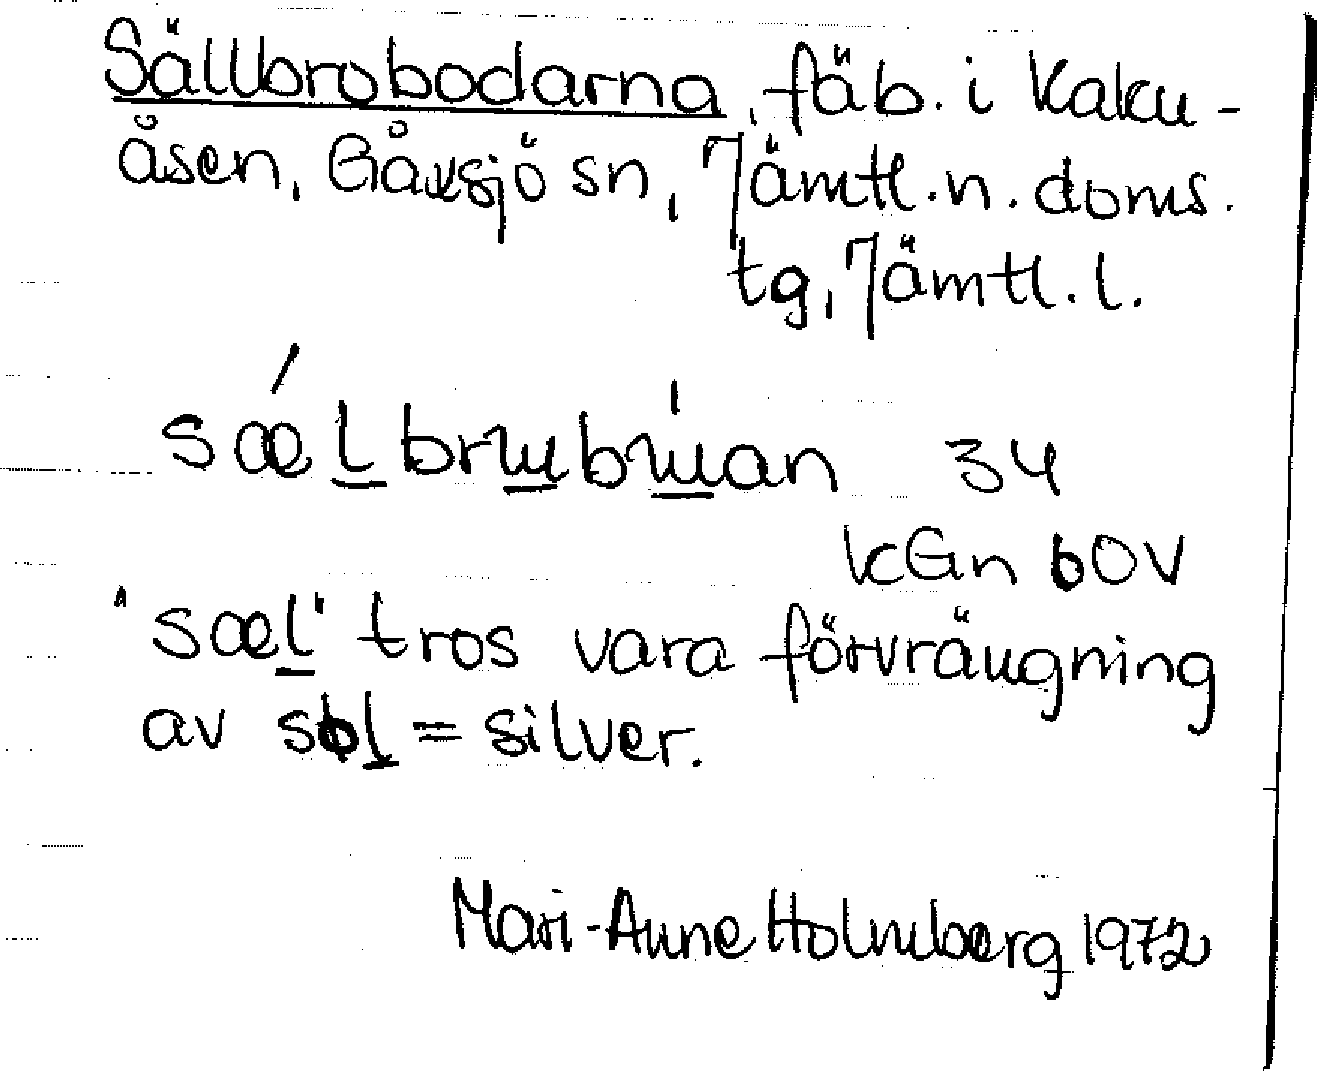 Sällbrobodarna, fäb. i Kaku-
åsen, Gåxsjö sn, Jämtl. n. doms.
tg, Jämtl. l.
sæ̷lbrɯbɯan 34
kGn bOV
"sæl" tros vara förvrängning
av = silver.
Mari-Anne Holmberg 1972